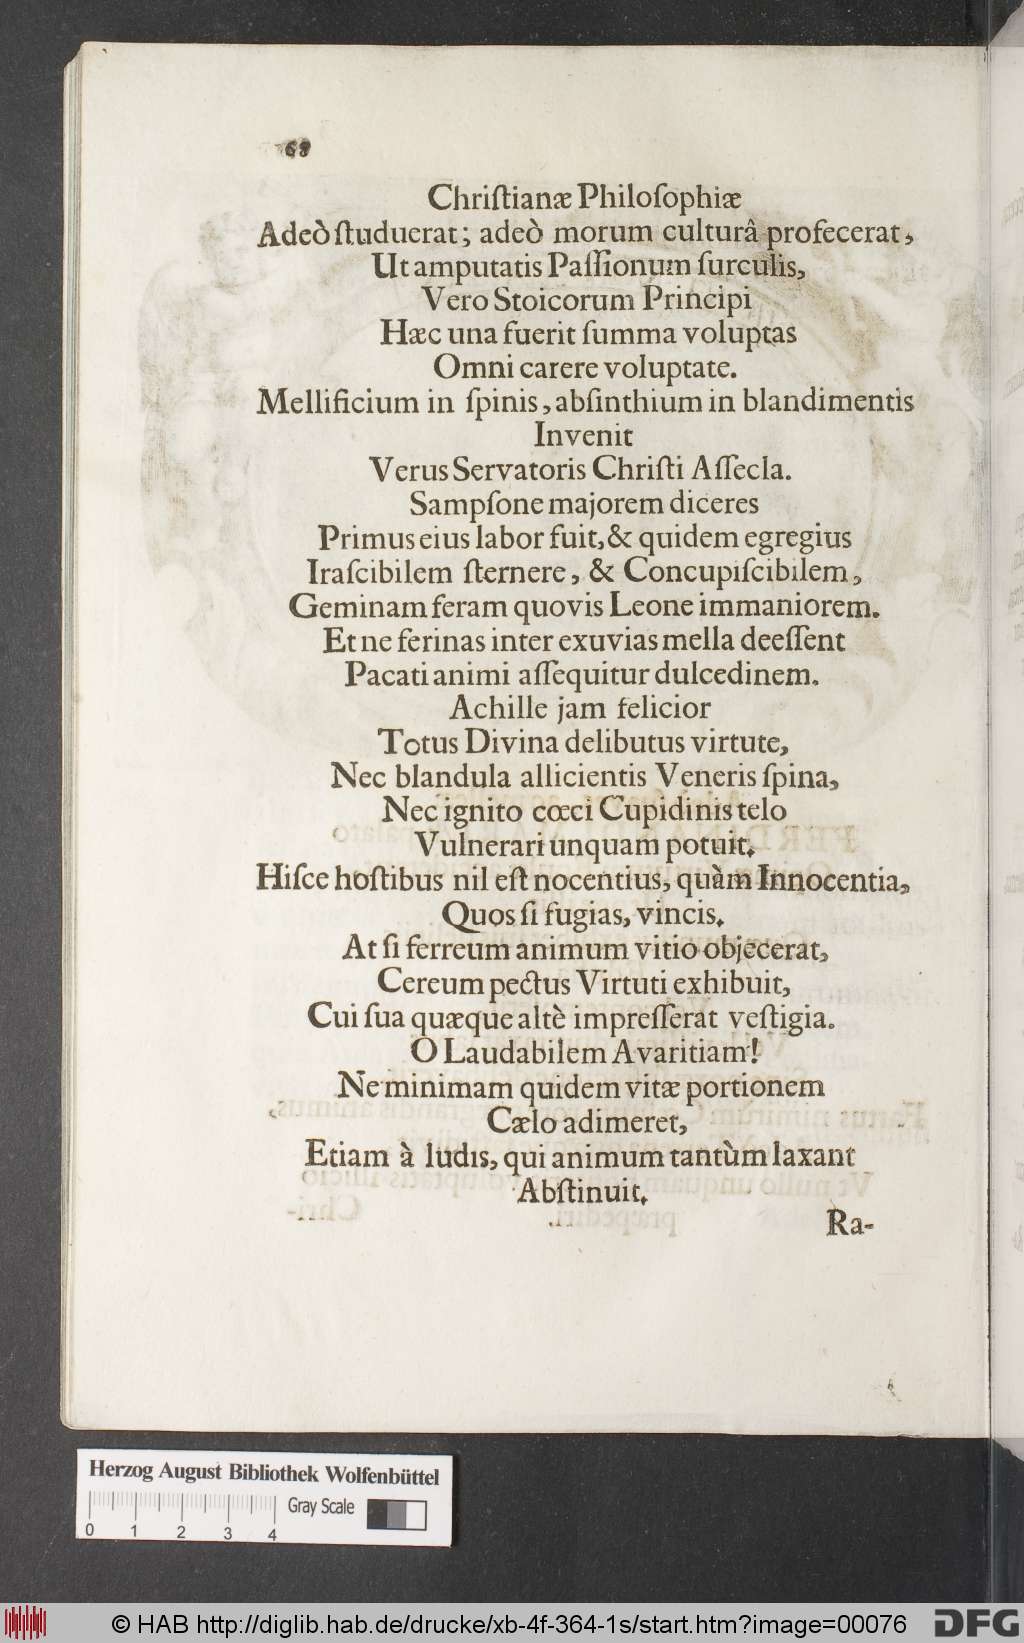 68
Chriſtianæ Philoſophiæ
Adeò ſtuduerat; adeò morum culturâ profecerat,
Ut amputatis Paſſionum ſurculis,
Vero Stoicorum Principi
Hæc una fuerit ſumma voluptas
Omni carere voluptate.
Mellificium in ſpinis, abſinthium in blandimentis
Invenit
Verus Servatoris Chriſti Aſſecla.
Sampſone majorem diceres
Primus eius labor fuit, & quidem egregius
Iraſcibilem ſternere, & Concupiſcibilem,
Geminam feram quovis Leone immaniorem.
Et ne ferinas inter exuvias mella deeſſent
Pacati animi aſſequitur dulcedinem.
Achille jam felicior
Totus Divina delibutus virtute,
Nec blandula allicientis Veneris ſpina,
Nec ignito cœci Cupidinis telo
Vulnerari unquam potuit.
Hiſce hoſtibus nil eſt nocentius, quàm Innocentia,
Quos ſi fugias, vincis.
At ſi ferreum animum vitio objecerat,
Cereum pectus Virtuti exhibuit,
Cui ſua quæque altè impreſſerat veſtigia.
O Laudabilem Avaritiam!
Ne minimam quidem vitæ portionem
Cælo adimeret,
Etiam à ludis, qui animum tantùm laxant
Abſtinuit.
Ra-
Herzog August Bibliothek Wolfenbüttel
Gray Scale
0 1 2 3 4
© HAB http://diglib.hab.de/drucke/xb-4f-364-1s/start.htm?image=00076
DFG